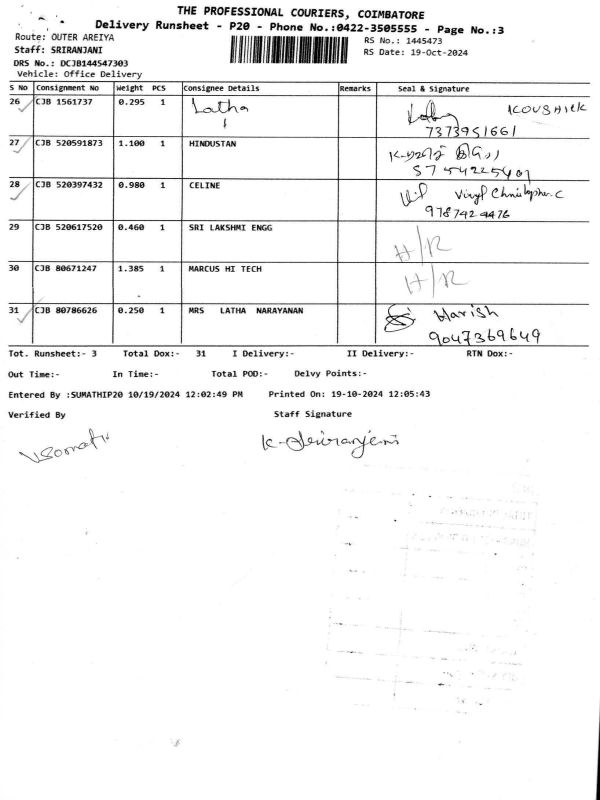 THE PROFESSIONAL COURIERS, COIMBATORE
Delivery Runsheet - P20 - Phone No.:0422-3505555 - Page No.:3
Route: OUTER AREIYA
RS No.: 1445473
Staff: SRIRANJANI
RS Date: 19-Oct-2024
DRS No.: DCJB144547303
Vehicle: Office Delivery
S No Consignment No Weight PCS Consignee Details Remarks Seal & Signature
26 CJB 1561737 0.295 1 Latha KOUSHICK
7373951661
27 CJB 520591873 1.100 1 HINDUSTAN
28 CJB 520397432 0.980 1 CELINE Christopher. C
9787424476
29 CJB 520617520 0.460 1 SRI LAKSHMI ENGG H/R
30 CJB 80671247 1.385 1 MARCUS HI TECH H/R
31 CJB 80786626 0.250 1 MRS LATHA NARAYANAN Harish
9047369649
Tot. Runsheet:- 3 Total Dox:- 31 I Delivery:- II Delivery:- RTN Dox:-
Out Time:- In Time:- Total POD:- Delvy Points:-
Entered By :SUMATHIP20 10/19/2024 12:02:49 PM Printed On: 19-10-2024 12:05:43
Verified By Staff Signature
K-Sriranjani